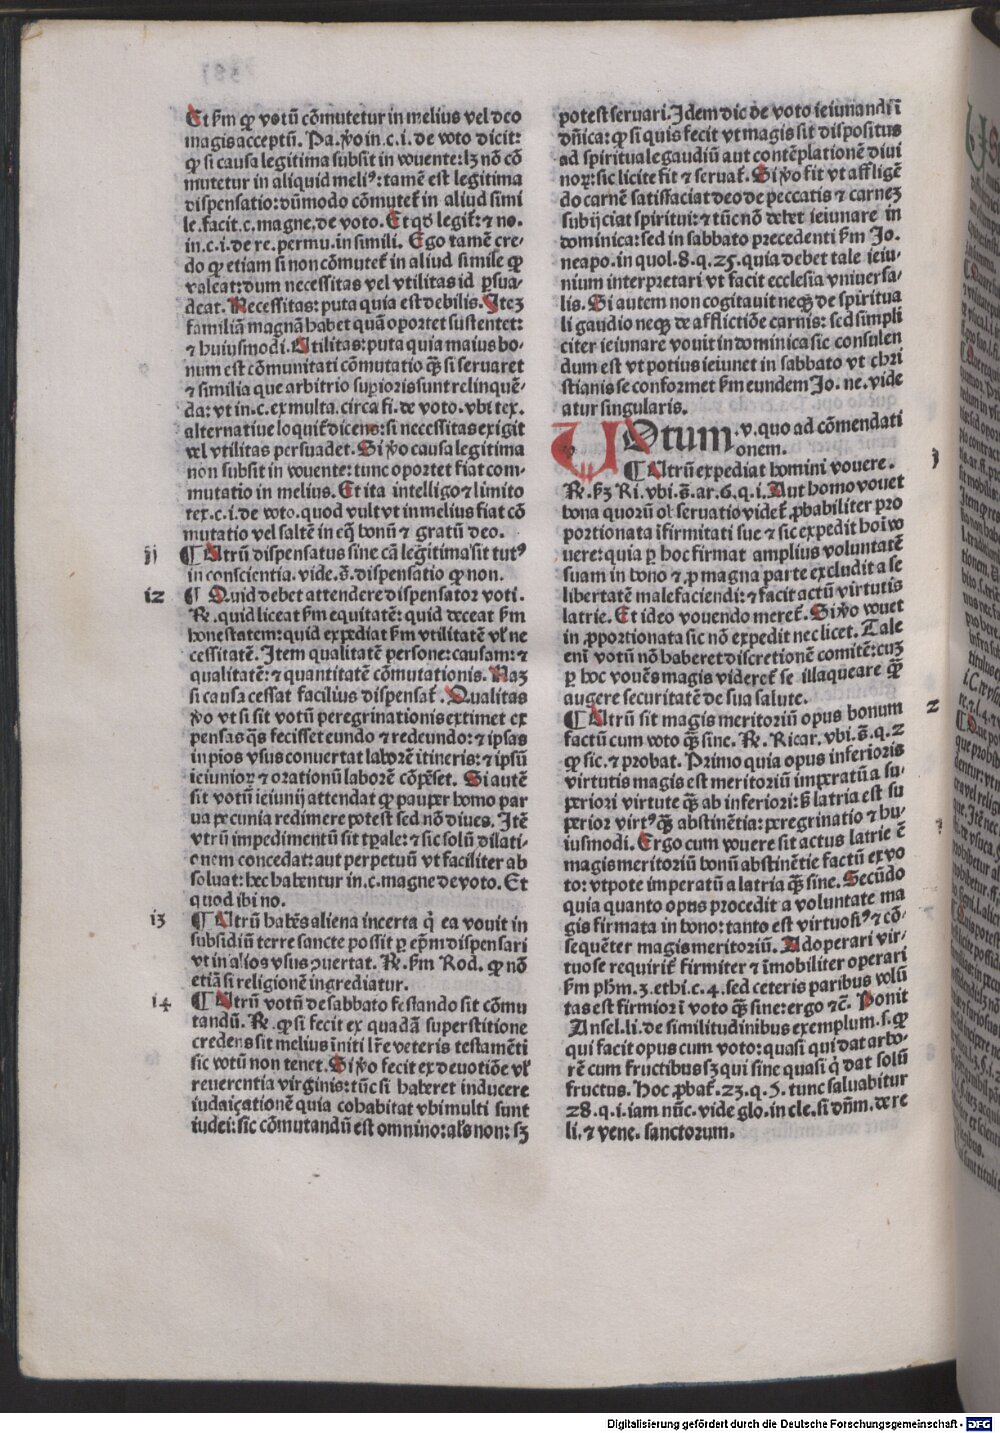 Et ẜm ꝙ votū cōmutetur in melius vel deo
magis acceptū. Pa. ꝟo in .c. i. de voto dicit:
ꝙ si causa legitima subsit in vouente: lꝫ nō cō
mutetur in aliquid meliꝰ: tamē est legitima
dispensatio: dūmodo cōmutet̄ in aliud simi
le. facit .c. magne. de voto. Et qď legit̄: ⁊ no.
in .c. i. de re. permu. in simili. Ego tamē cre-
do ꝙ etiam si non cōmutet̄ in aliud simile ꝙ
valeat: dum necessitas vel vtilitas id ꝑsua-
deat. Necessitas: puta quia est debilis. Iteꝫ
familiā magnā habet quā oportet sustentet:
⁊ huiusmodi. Utilitas: puta quia maius bo-
num est cōmunitati cōmutatio q̄ꝫ si seruaret
⁊ similia que arbitrio suꝑioris sunt relinquē-
da: vt in .c. ex multa. circa fi. de voto. vbi tex.
alternatiue loquit̄ dicens: si necessitas exigit
vel vtilitas persuadet. Si ꝟo causa legitima
non subsit in vouente: tunc oportet fiat com-
mutatio in melius. Et ita intelligo ⁊ limito
tex. c. i. de voto. quod vult vt in melius fiat cō
mutatio vel saltē in eq̄ bonū ⁊ gratū deo.
ij ¶ Utrū dispensatus sine cā legitima sit tutꝰ
in conscientia. vide .s̄. dispensatio ꝙ non.
12 ¶ Quid debet attendere dispensator voti.
Re. quid liceat ẜm equitatē: quid deceat ẜm
honestatem: quid expediat ẜm vtilitatē vl̓ ne
cessitatē. Item qualitatē persone: causam: ⁊
qualitatē: ⁊ quantitatē cōmutationis. Naꝫ
si causa cessat facilius dispensat̄. Qualitas
ꝟo vt si sit votū peregrinationis extimet ex
pensas q̄s fecisset eundo ⁊ redeundo: ⁊ ipsas
in pios vsus conuertat laborē itineris: ⁊ ipsū
ieiunioꝝ ⁊ orationū laborē cōpēset. Si autē
sit votū ieiunij attendat ꝙ pauper homo par
ua pecunia redimere potest sed nō diues. Itē
vtrū impedimentū sit tꝑale: ⁊ sic solū dilati-
onem concedat: aut perpetuū vt faciliter ab
soluat: hec habentur in .c. magne de voto. Et
quod ibi no.
13 ¶ Utrū habēs aliena incerta q̇ ea vouit in
subsidiū terre sancte possit ꝑ ep̄m dispensari
vt in alios vsus ꝯuertat. Re. ẜm Rod. ꝙ nō
etiā si religionē ingrediatur.
14 ¶ Utrū votū de sabbato festando sit cōmu
tandū. Re. ꝙ si fecit ex quadā superstitione
credens sit melius initi lr̄e veteris testamēti
sic votū non tenet. Si ꝟo fecit ex deuotiōe vl̓
reuerentia virginis: tūc si haberet inducere
iudaiçationē quia cohabitat vbi multi sunt
iudei: sic cōmutandū est omnino: als non: sꝫ
potest seruari. Idem dic de voto ieiunandi ī
dn̄ica: ꝙ si quis fecit vt magis sit dispositus
ad spirituale gaudiū aut contēplationē diui
noꝝ: sic licite fit ⁊ seruat̄. Si ꝟo fit vt affligē
do carnē satisfaciat deo de peccatis ⁊ carneꝫ
subijciat spiritui: ⁊ tūc nō debet ieiunare in
dominica: sed in sabbato precedenti ẜm Jo.
neapo. in quol. 8. q. 25. quia debet tale ieiu-
nium interpretari vt facit ecclesia vniuersa-
lis. Si autem non cogitauit neqꝫ de spiritua
li gaudio neqꝫ de afflictiōe carnis: sed simpli
citer ieiunare vouit in dominica sic consulen
dum est vt potius ieiunet in sabbato vt chri
stianis se conformet ẜm eundem Jo. ne. vide
atur singularis.
UOtum .v. quo ad cōmendati
onem.
j ¶ Utrū expediat homini vouere.
Re. ẜꝫ Ri. vbi .s̄. ar. 6. q. i. Aut homo vouet
bona quorū obseruatio videt̄ ꝓbabiliter pro
portionata ifirmitati sue ⁊ sic expedit hoī vo
uere: quia ꝑ hoc firmat amplius voluntatē
suam in bono ⁊ ꝓ magna parte excludit a se
libertatē malefaciendi: ⁊ facit actū virtutis
latrie. Et ideo vouendo meret̄. Si ꝟo vouet
in ꝓportionata sic nō expedit nec licet. Tale
enī votū nō haberet discretionē comitē: cuꝫ
ꝑ hoc vouēs magis videret̄ se illaqueare q̄ꝫ
augere securitatē de sua salute.
2 ¶ Utrū sit magis meritoriū opus bonum
factū cum voto q̄ꝫ sine. Re. Ricar. vbi .s̄. q. 2
ꝙ sic. ⁊ probat. Primo quia opus inferioris
virtutis magis est meritoriū imperatū a su-
periori virtute q̄ꝫ ab inferiori: ꝫ latria est su
perior virtꝰ q̄ꝫ abstinētia: peregrinatio ⁊ hu
iusmodi. Ergo cum vouere sit actus latrie ē
magis meritoriū bonū abstinētie factū ex vo
to: vtpote imperatū a latria q̄ꝫ sine. Secūdo
quia quanto opus procedit a voluntate ma
gis firmata in bono: tanto est virtuosiꝰ ⁊ cō-
sequēter magis meritoriū. Ad operari vir-
tuose requirit̄ firmiter ⁊ īmobiliter operari
ẜm ph̄m. 3. ethi. c. 4. sed ceteris paribus volū
tas est firmior ī voto q̄ꝫ sine: ergo ⁊c̄. Ponit
Ansel. li. de similitudinibus exemplum .s. ꝙ
qui facit opus cum voto: quasi qui dat arbo-
rē cum fructibus sꝫ qui sine quasi q̇ dat solū
fructus. Hoc ꝓbat̄. 23. q. 5. tunc saluabitur
28. q. i. iam nūc. vide glo. in cle. si dn̄m. de re
li. ⁊ vene. sanctorum.
Digitalisierung gefördert durch die Deutsche Forschungsgemeinschaft - DFG